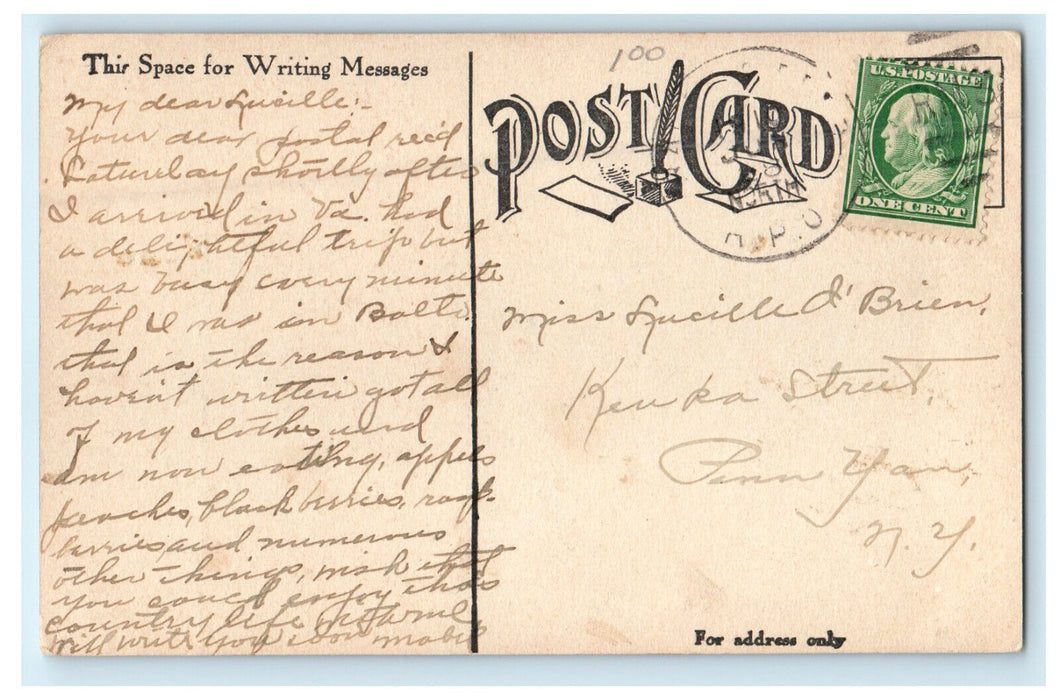 This Space for Writing Messages
My dear Lucille:-
Your dear postal rec'd
Saturday shortly after
I arrived in Va. had
a delightful trip but
was busy every minute
that I was in Balto.
that is the reason I
haven't written got all
of my clothes and
am now eating, apples
peaches, blackberries, rasp-
berries and numerous
other things, wish that
you could enjoy this
country life with me
will write you soon Mabel
100
POST CARD
U.S. POSTAGE
ONE CENT
NORTH
R.P.O.
Miss Lucille O'Brien,
Keuka Street,
Penn Yan,
N.Y.
For address only